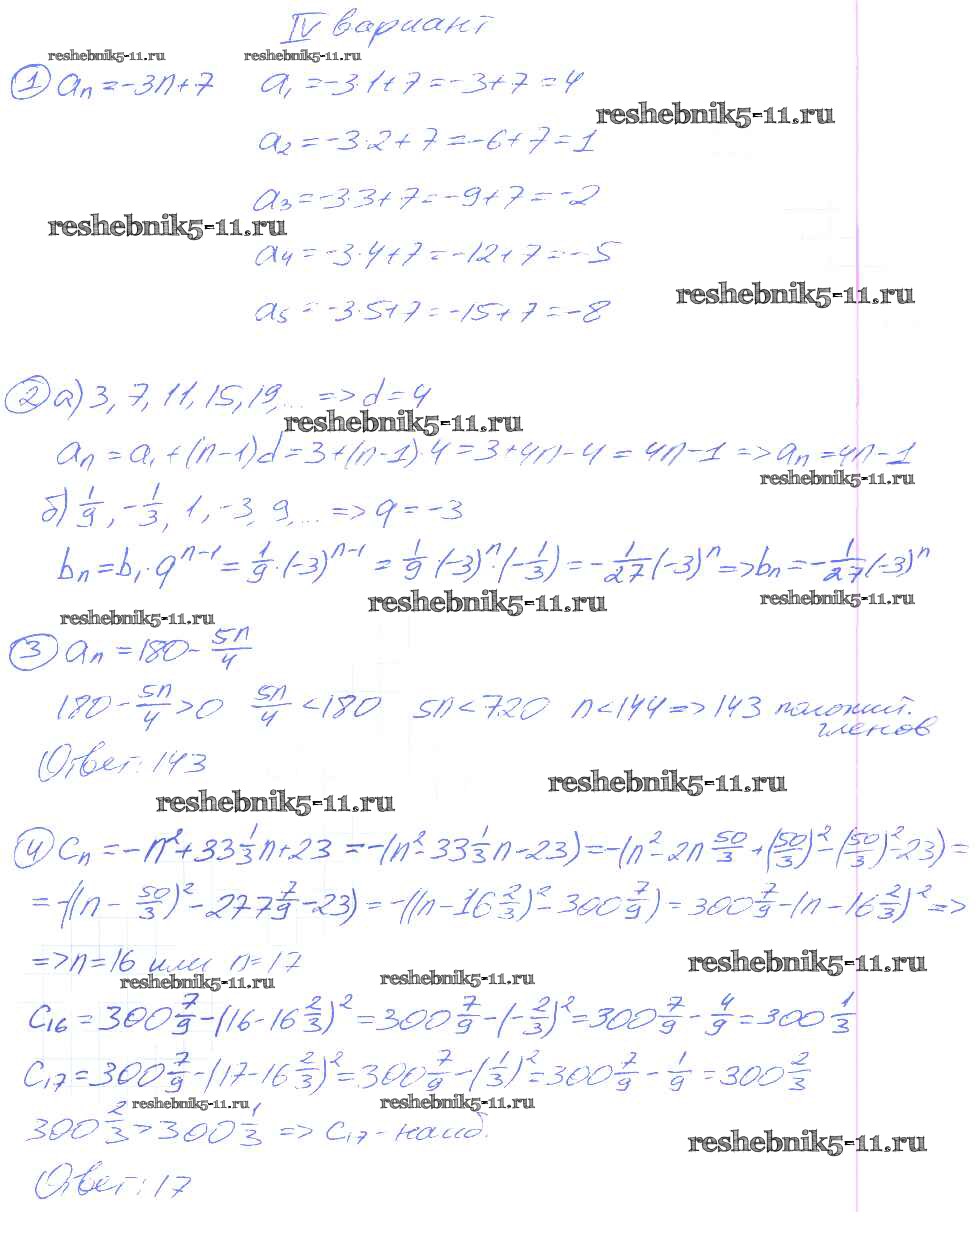 IV вариант
reshebnik5-11.ru reshebnik5-11.ru
① aₙ = -3n+7 a₁ = -3·1+7 = -3+7 = 4
reshebnik5-11.ru
a₂ = -3·2+7 = -6+7 = 1
a₃ = -3·3+7 = -9+7 = -2
reshebnik5-11.ru
a₄ = -3·4+7 = -12+7 = -5
reshebnik5-11.ru
a₅ = -3·5+7 = -15+7 = -8
② а) 3, 7, 11, 15, 19,... => d = 4
reshebnik5-11.ru
aₙ = a₁ + (n-1)d = 3+(n-1)·4 = 3+4n-4 = 4n-1 => aₙ = 4n-1
reshebnik5-11.ru
б) 1/9, -1/3, 1, -3, 9,... => q = -3
bₙ = b₁·qⁿ⁻¹ = 1/9·(-3)ⁿ⁻¹ = 1/9·(-3)ⁿ·(-1/3) = -1/27(-3)ⁿ => bₙ = -1/27(-3)ⁿ
reshebnik5-11.ru reshebnik5-11.ru
reshebnik5-11.ru
③ aₙ = 180 - 5n/4
180 - 5n/4 > 0 5n/4 < 180 5n < 720 n < 144 => 143 положит.
членов
Ответ: 143
reshebnik5-11.ru
reshebnik5-11.ru
④ cₙ = -n² + 33 1/3 n + 23 = -(n² - 33 1/3 n - 23) = -(n² - 2n 50/3 + (50/3)² - (50/3)² - 23) =
= -((n - 50/3)² - 277 7/9 - 23) = -((n - 16 2/3)² - 300 7/9) = 300 7/9 - (n - 16 2/3)² =>
=> n = 16 или n = 17
reshebnik5-11.ru
reshebnik5-11.ru reshebnik5-11.ru
c₁₆ = 300 7/9 - (16 - 16 2/3)² = 300 7/9 - (-2/3)² = 300 7/9 - 4/9 = 300 1/3
c₁₇ = 300 7/9 - (17 - 16 2/3)² = 300 7/9 - (1/3)² = 300 7/9 - 1/9 = 300 2/3
reshebnik5-11.ru reshebnik5-11.ru
300 2/3 > 300 1/3 => c₁₇ - наиб.
reshebnik5-11.ru
Ответ: 17